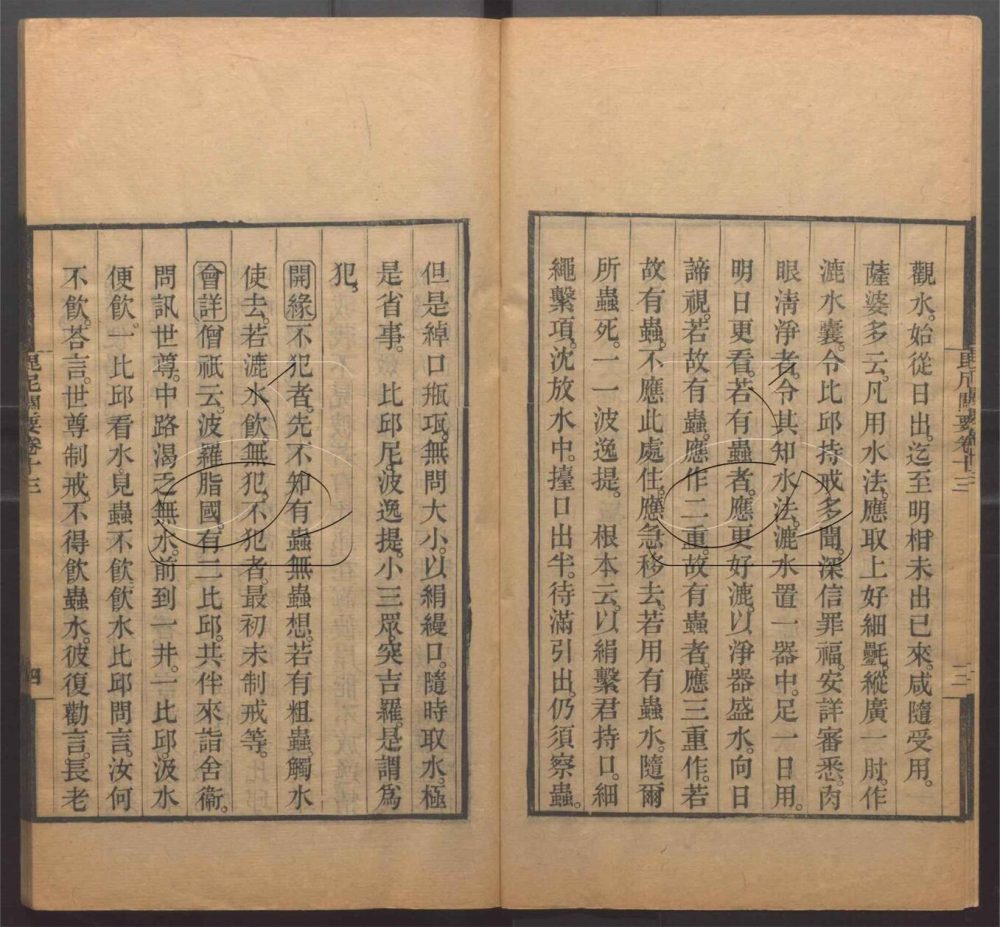 觀水。始從日出。迄至明相未出已來。咸隨受用。
薩婆多云。凡用水法。應取上好細㲲。縱廣一肘。作
漉水囊。令比邱持戒多聞。深信罪福。安詳審悉。肉
眼清淨者。令其知水法。漉水置一器中。足一日用。
明日更看。若有蟲者。應更好漉。以淨器盛水。向日
諦視。若故有蟲。應作二重。故有蟲者。應三重作。若
故有蟲。不應此處住。應急移去。若用有蟲水。隨爾
所蟲死。一一波逸提。 根本云。以絹繫君持口。細
繩繫項。沈放水中。擡口出半。待滿引出。仍須察蟲。
毘尼關要卷十三
三
但是綽口瓶瓨。無問大小。以絹縵口。隨時取水。極
是省事。 比邱尼。波逸提。小三眾。突吉羅。是謂為
犯。
開緣不犯者。先不知有蟲無蟲想。若有粗蟲。觸水
使去。若漉水飲。無犯。不犯者。最初未制戒等。
會詳僧祇云。波羅脂國。有二比邱。共伴來詣舍衞。
問訊世尊。中路渴乏無水。前到一井。一比邱。汲水
便飲。一比邱看水。見蟲不飲。飲水比邱問言。汝何
不飲。荅言。世尊制戒。不得飲蟲水。彼復勸言。長老
毘尼關要卷十三
四